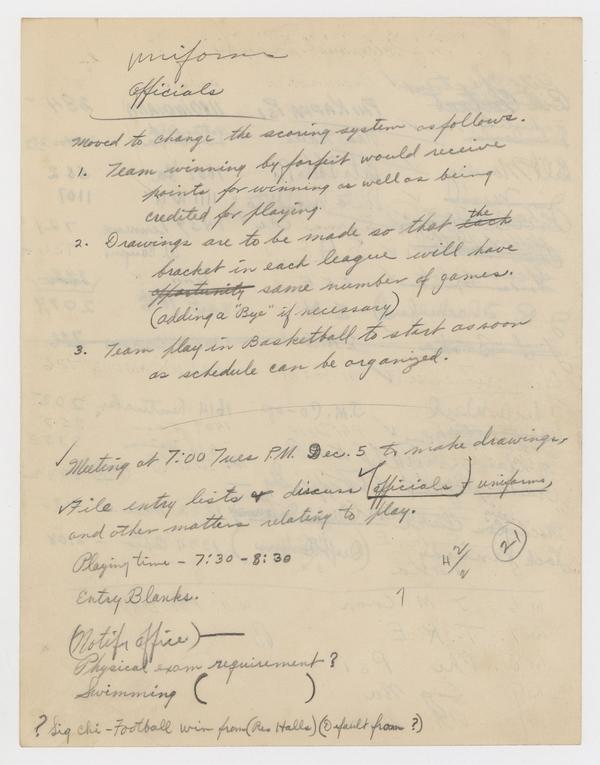 uniforms
Officials
Moved to change the scoring system as follows.
1. Team winning by forfeit would receive
points for winning as well as being
credited for playing.
2. Drawings are to be made so that the each
bracket in each league will have
opportunity same number of games.
(adding a "Bye" if necessary)
3. Team play in Basketball to start as soon
as schedule can be organized.
✓ Meeting at 7:00 Tues P.M. Dec. 5 to make drawings,
✓ File entry lists & discuss (officials) + uniforms,
and other matters relating to play.
Playing time - 7:30 - 8:30
21
Entry Blanks.
(Notify office) —
Physical exam requirement?
Swimming ( )
? Sig Chi - Football win from (Res Halls) (Default from ?)